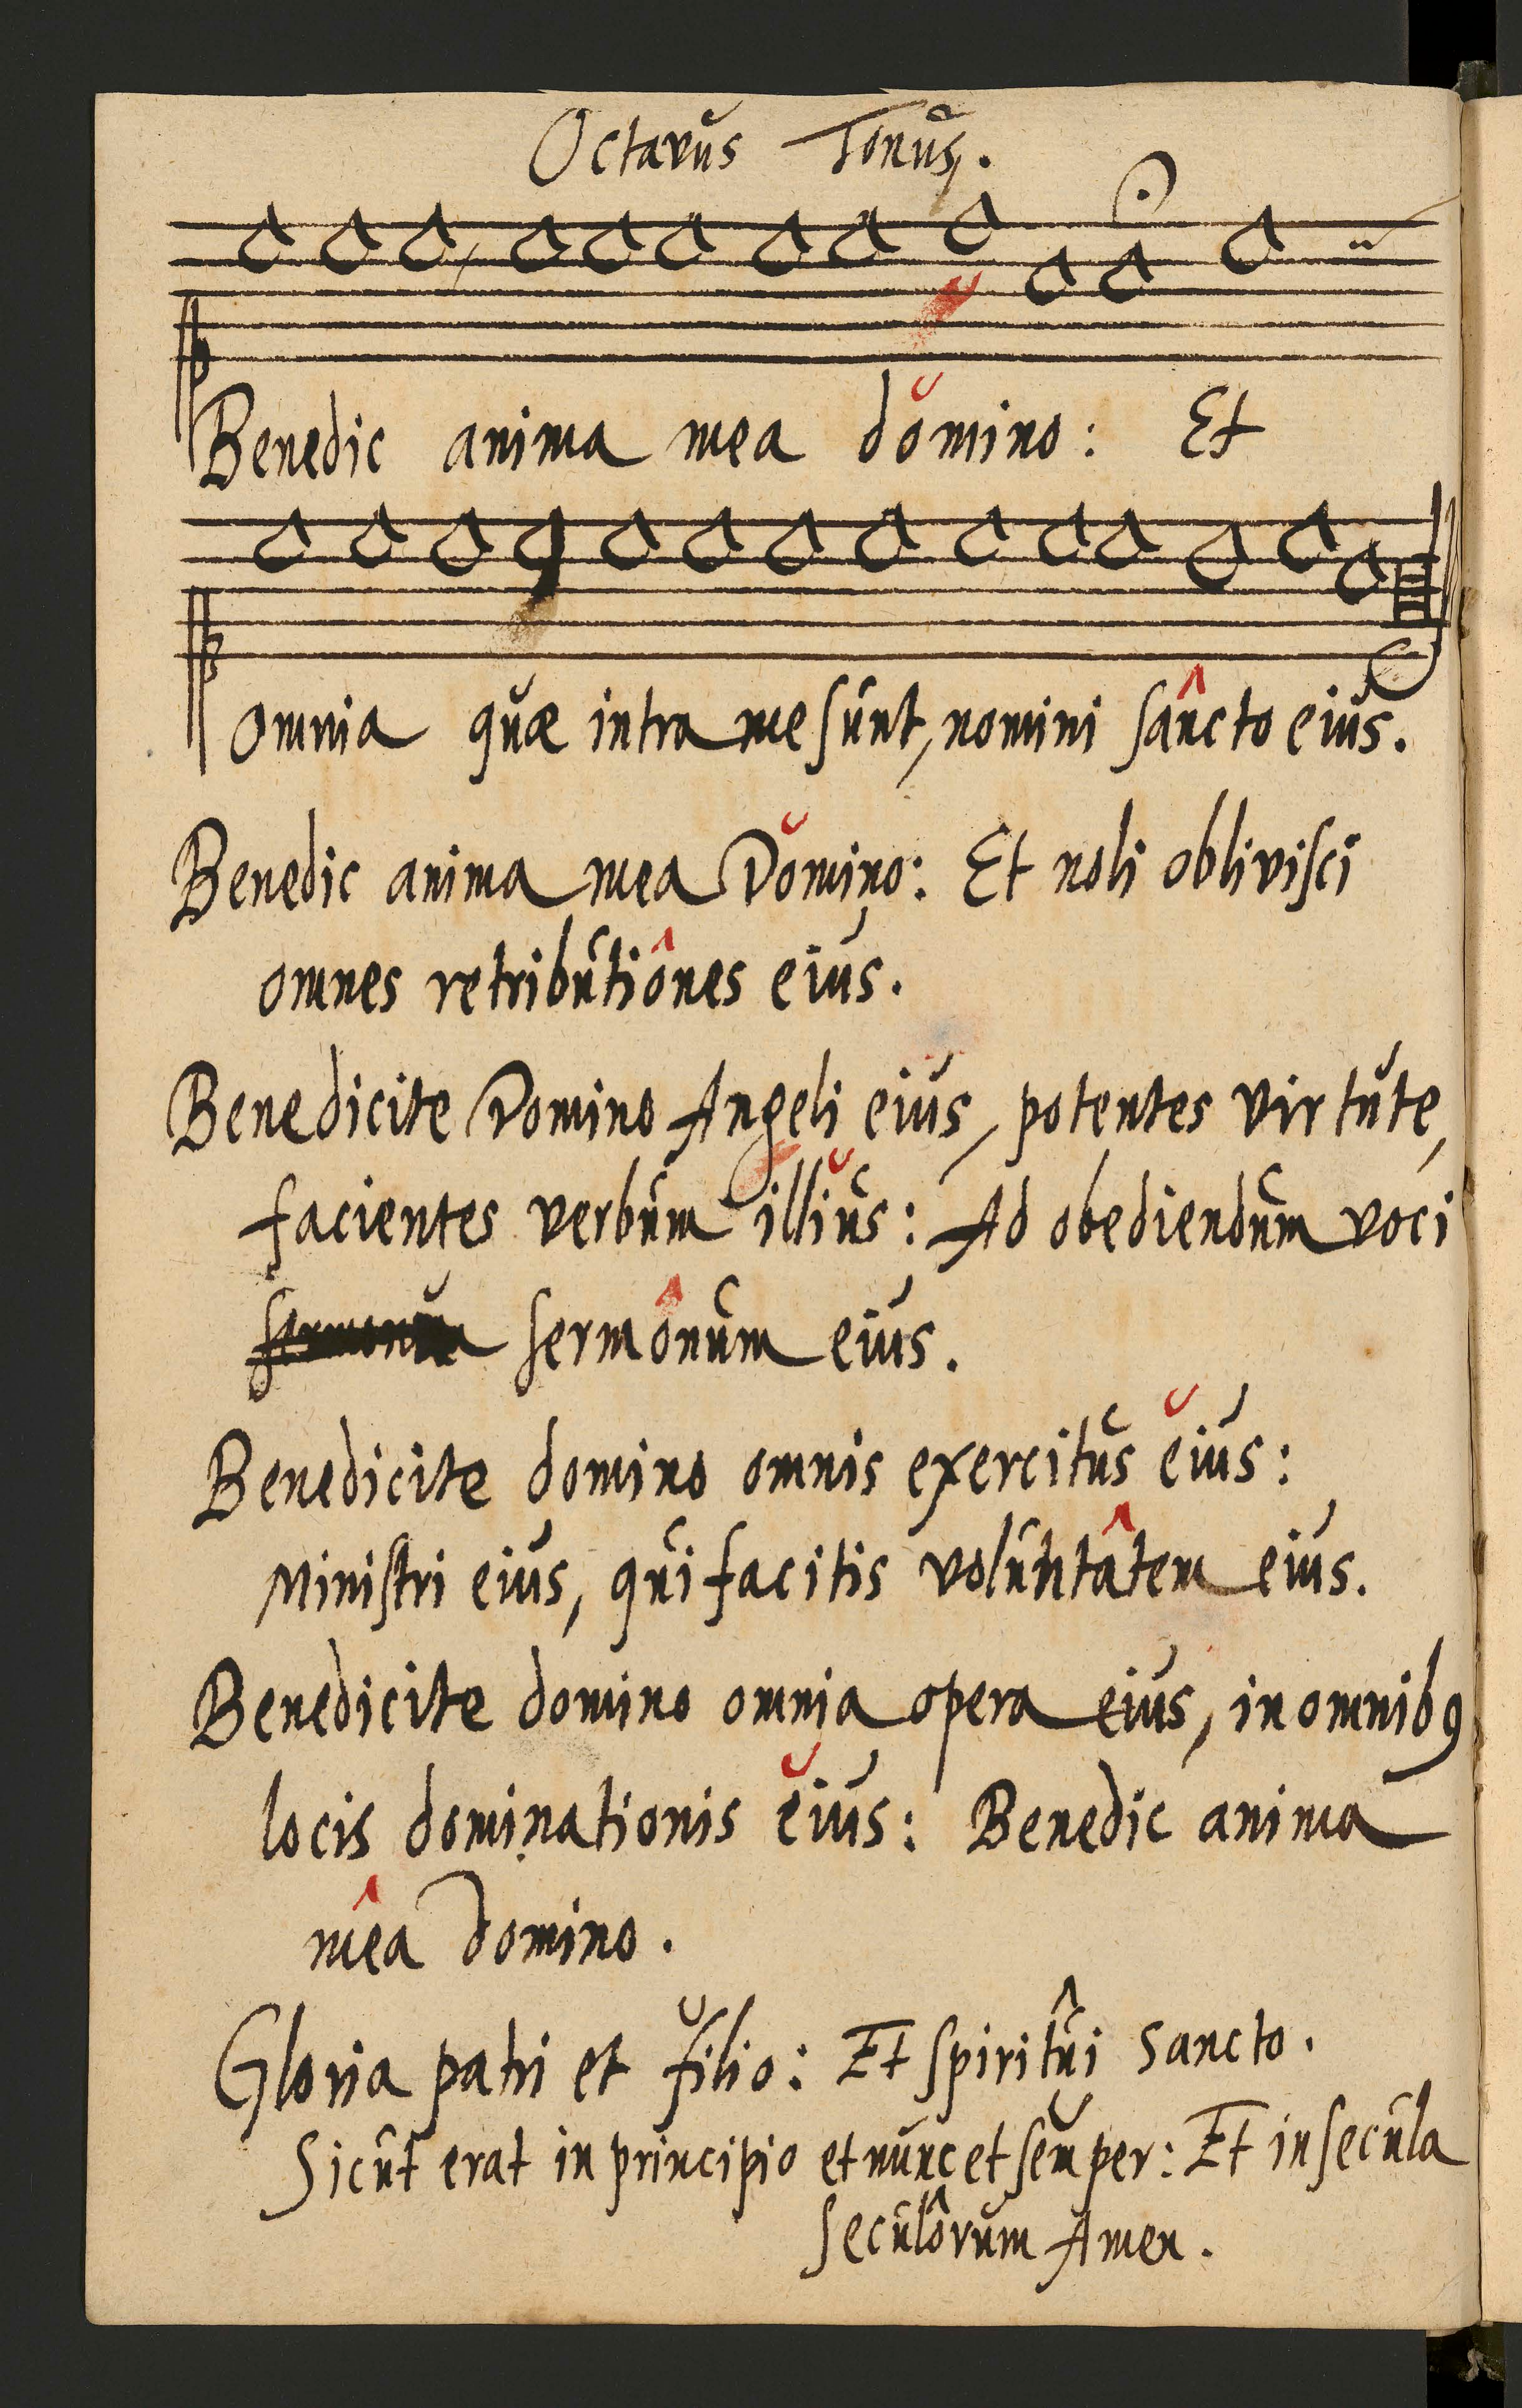 Octavus Tonus.
Benedic anima mea domino: Et
omnia quæ intra me sunt, nomini sâncto eius.
Benedic anima mea Domino: Et noli oblivisci
omnes retributiônes eius.
Benedicite Domino Angeli eius, potentes virtute,
facientes verbum illius: Ad obediendum voci
sermonum sermônum eius.
Benedicite domino omnis exercitus ĕius:
Ministri eius, qui facitis voluntâtem eius.
Benedicite domino omnia opera eius, in omnib9
locis dominationis ĕius: Benedic anima
mêa Domino.
Gloria patri et filio: Et spiritûi sancto.
Sicut erat in principio et nunc et sĕmper: Et in secula
seculôrum Amen.